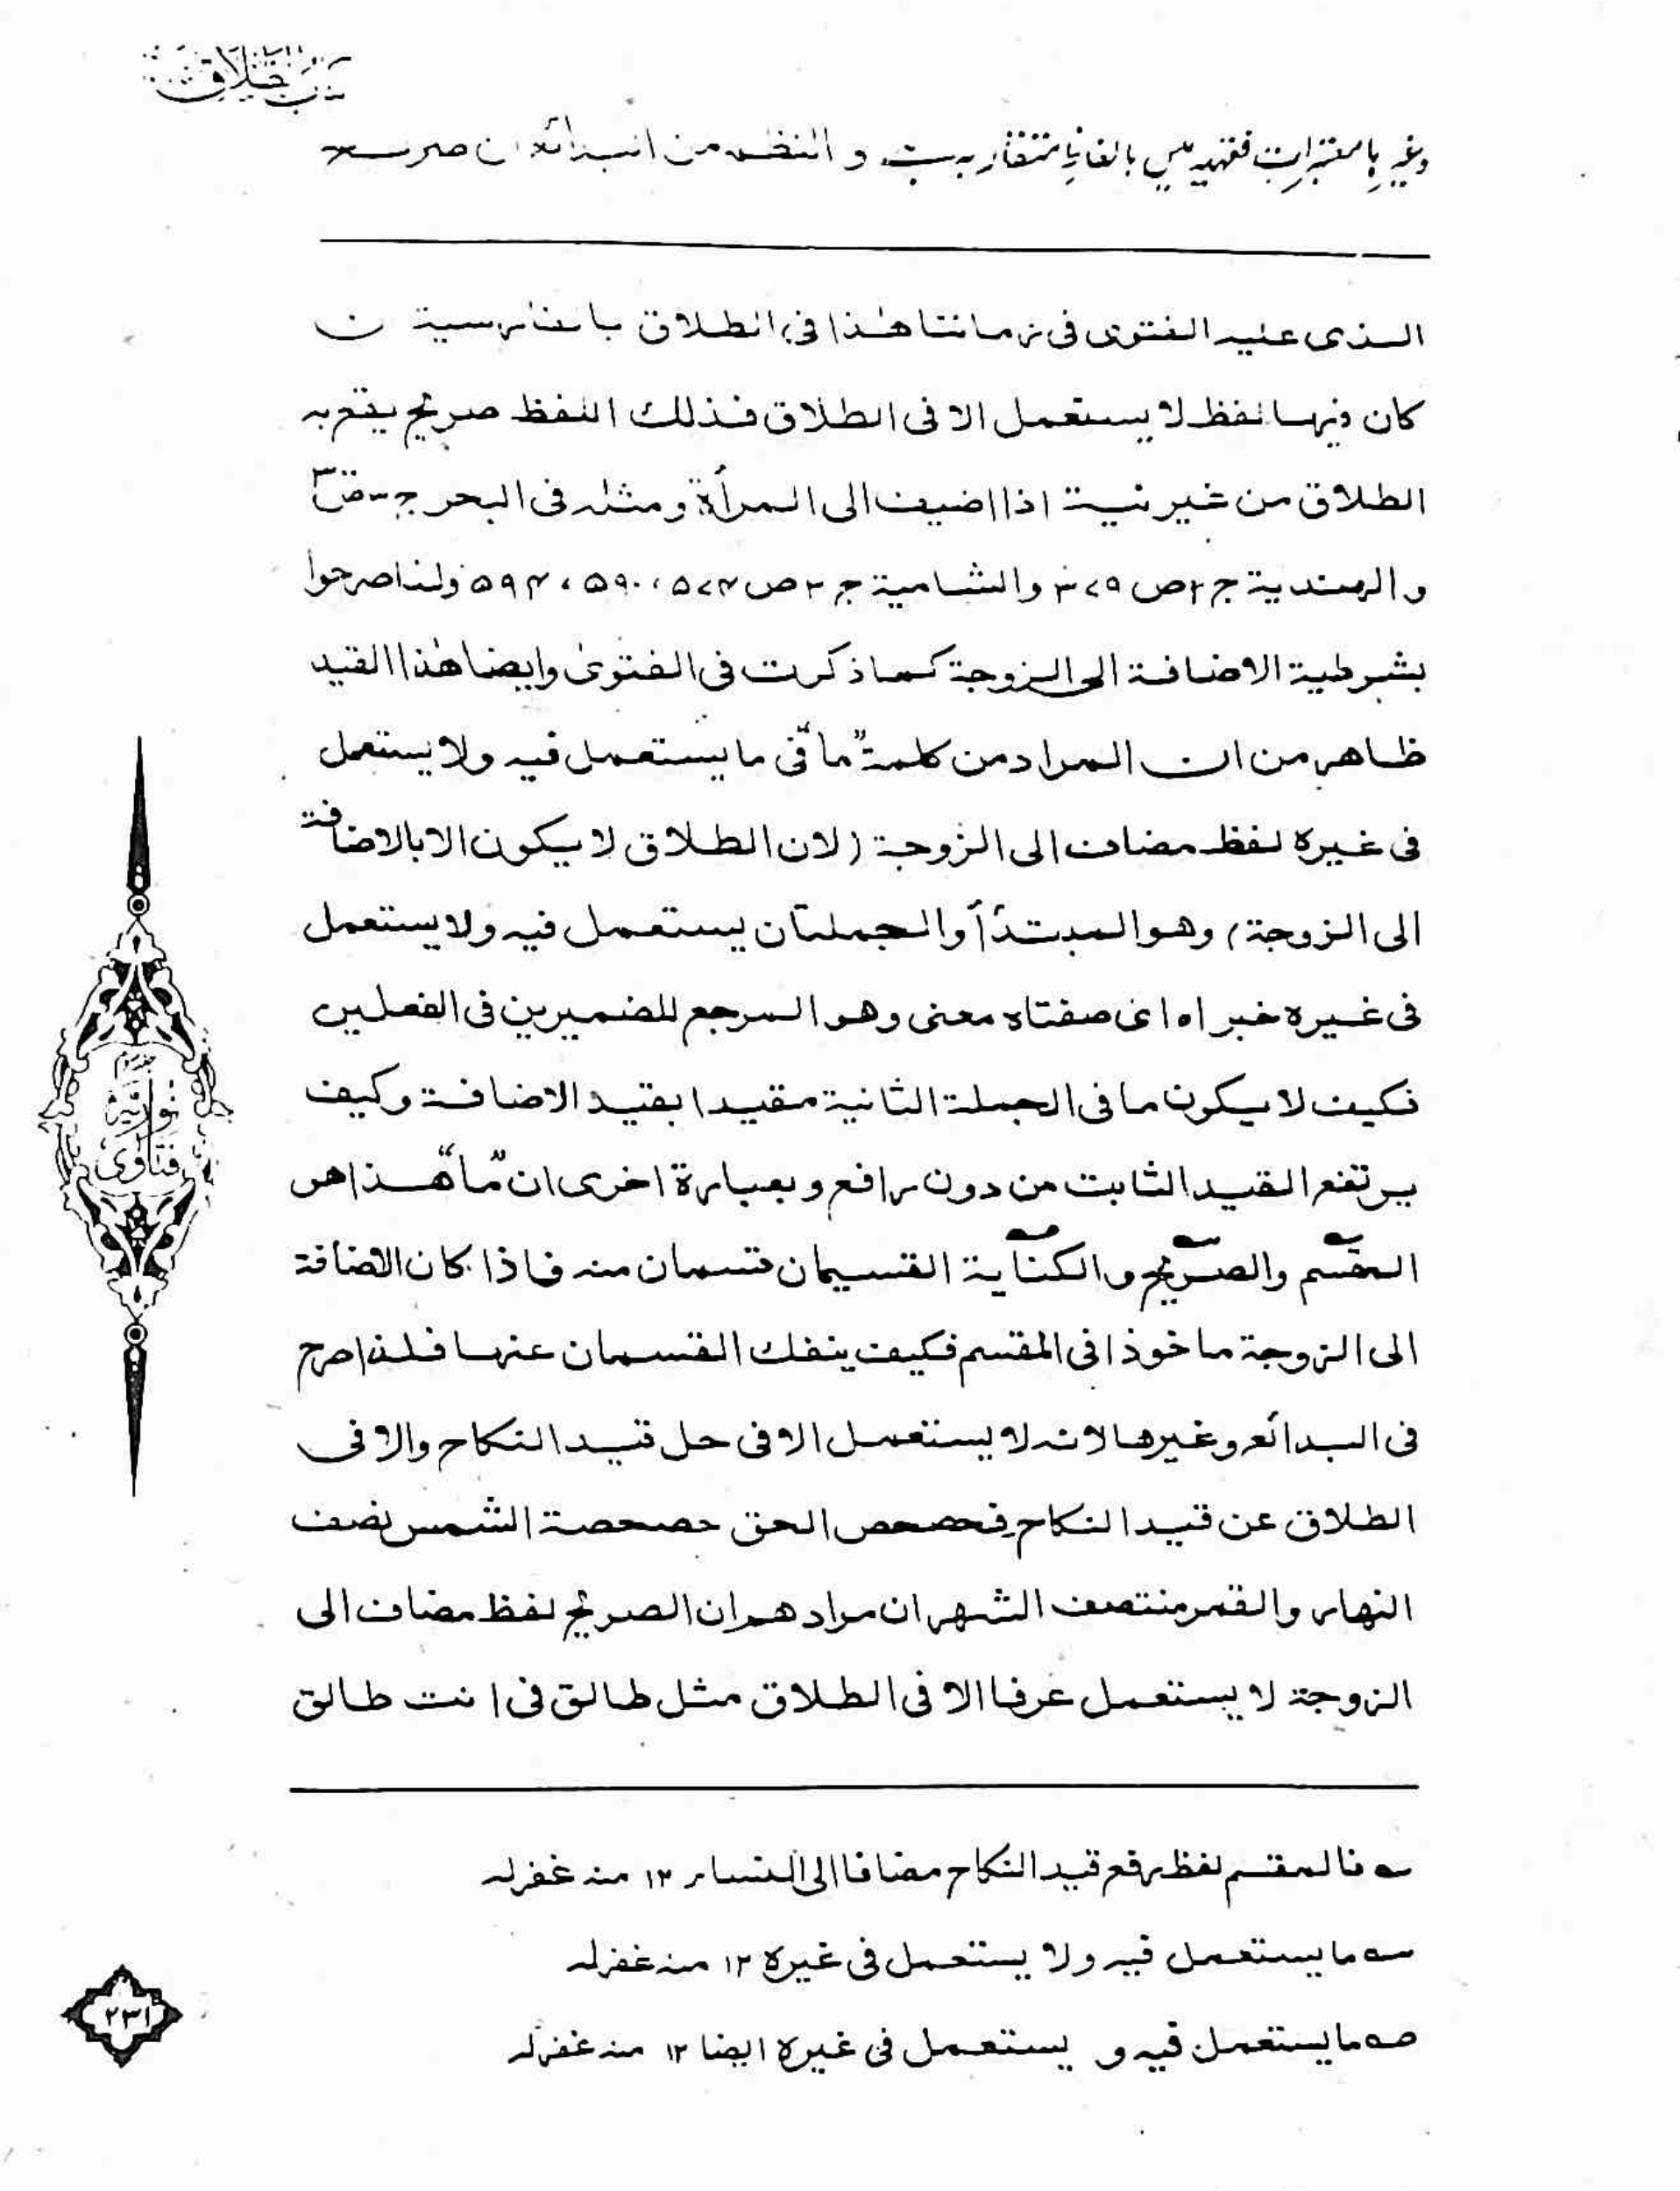 کتاب الطلاق
وغیرہا معتبرات فقہیہ میں بالفاظ متقاربہ ہے والنظم من البدائع ان صریحہ
الذی علیہ الفتوی فی زماننا ھٰذا فی الطلاق بالفارسیۃ ان
کان فیہا لفظ لا یستعمل الا فی الطلاق فذلک اللفظ صریح یقع بہ
الطلاق من غیر نیۃ اذا اضیف الی المرأۃ ومثلہ فی البحر ج ۳ ص
والہندیۃ ج ۲ ص ۳۷۹ والشامیۃ ج ۲ ص ۵۷۴، ۵۹۰، ۵۹۴ ولنا صرحوا
بشرطیۃ الاضافۃ الی الزوجۃ کما ذکرت فی الفتویٰ وایضا ھٰذا القید
ظاھر من ان المراد من کلمۃ "ما" فی ما یستعمل فیہ ولا یستعمل
فی غیرہ لفظ مضاف الی الزوجۃ (لان الطلاق لا یکون الا بالاضافۃ
الی الزوجۃ) وھو المبتدأ والجملتان یستعمل فیہ ولا یستعمل
فی غیرہ خبراہ ای صفتاہ معنی وھو المرجع للضمیرین فی الفعلین
فکیف لا یکون ما فی الجملۃ الثانیۃ مقیدا بقید الاضافۃ وکیف
یرتفع القید الثابت من دون رافع وبعبارۃ اخری ان "ما" ھذا ھو
المقسم والصریح والکنایۃ القسیمان قسمان منہ فاذا کان الاضافۃ
الی الزوجۃ ماخوذا فی المقسم فکیف ینفک القسمان عنہا فلذا صرح
فی البدائع وغیرھا لانہ لا یستعمل الا فی حل قید النکاح والا فی
الطلاق عن قید النکاح فحصحص الحق حصحصۃ الشمس نصف
النھار والقمر منتصف الشہر ان مرادھم ان الصریح لفظ مضاف الی
الزوجۃ لا یستعمل عرفا الا فی الطلاق مثل طالق فی انت طالق
فتاوی نوریہ
سہ فالمقسم لفظ رفع قید النکاح مضافا الی النساء ۱۲ منہ غفرلہ
سہ ما یستعمل فیہ ولا یستعمل فی غیرہ ۱۲ منہ غفرلہ
صہ ما یستعمل فیہ و یستعمل فی غیرہ ایضا ۱۲ منہ غفرلہ
۲۳۱